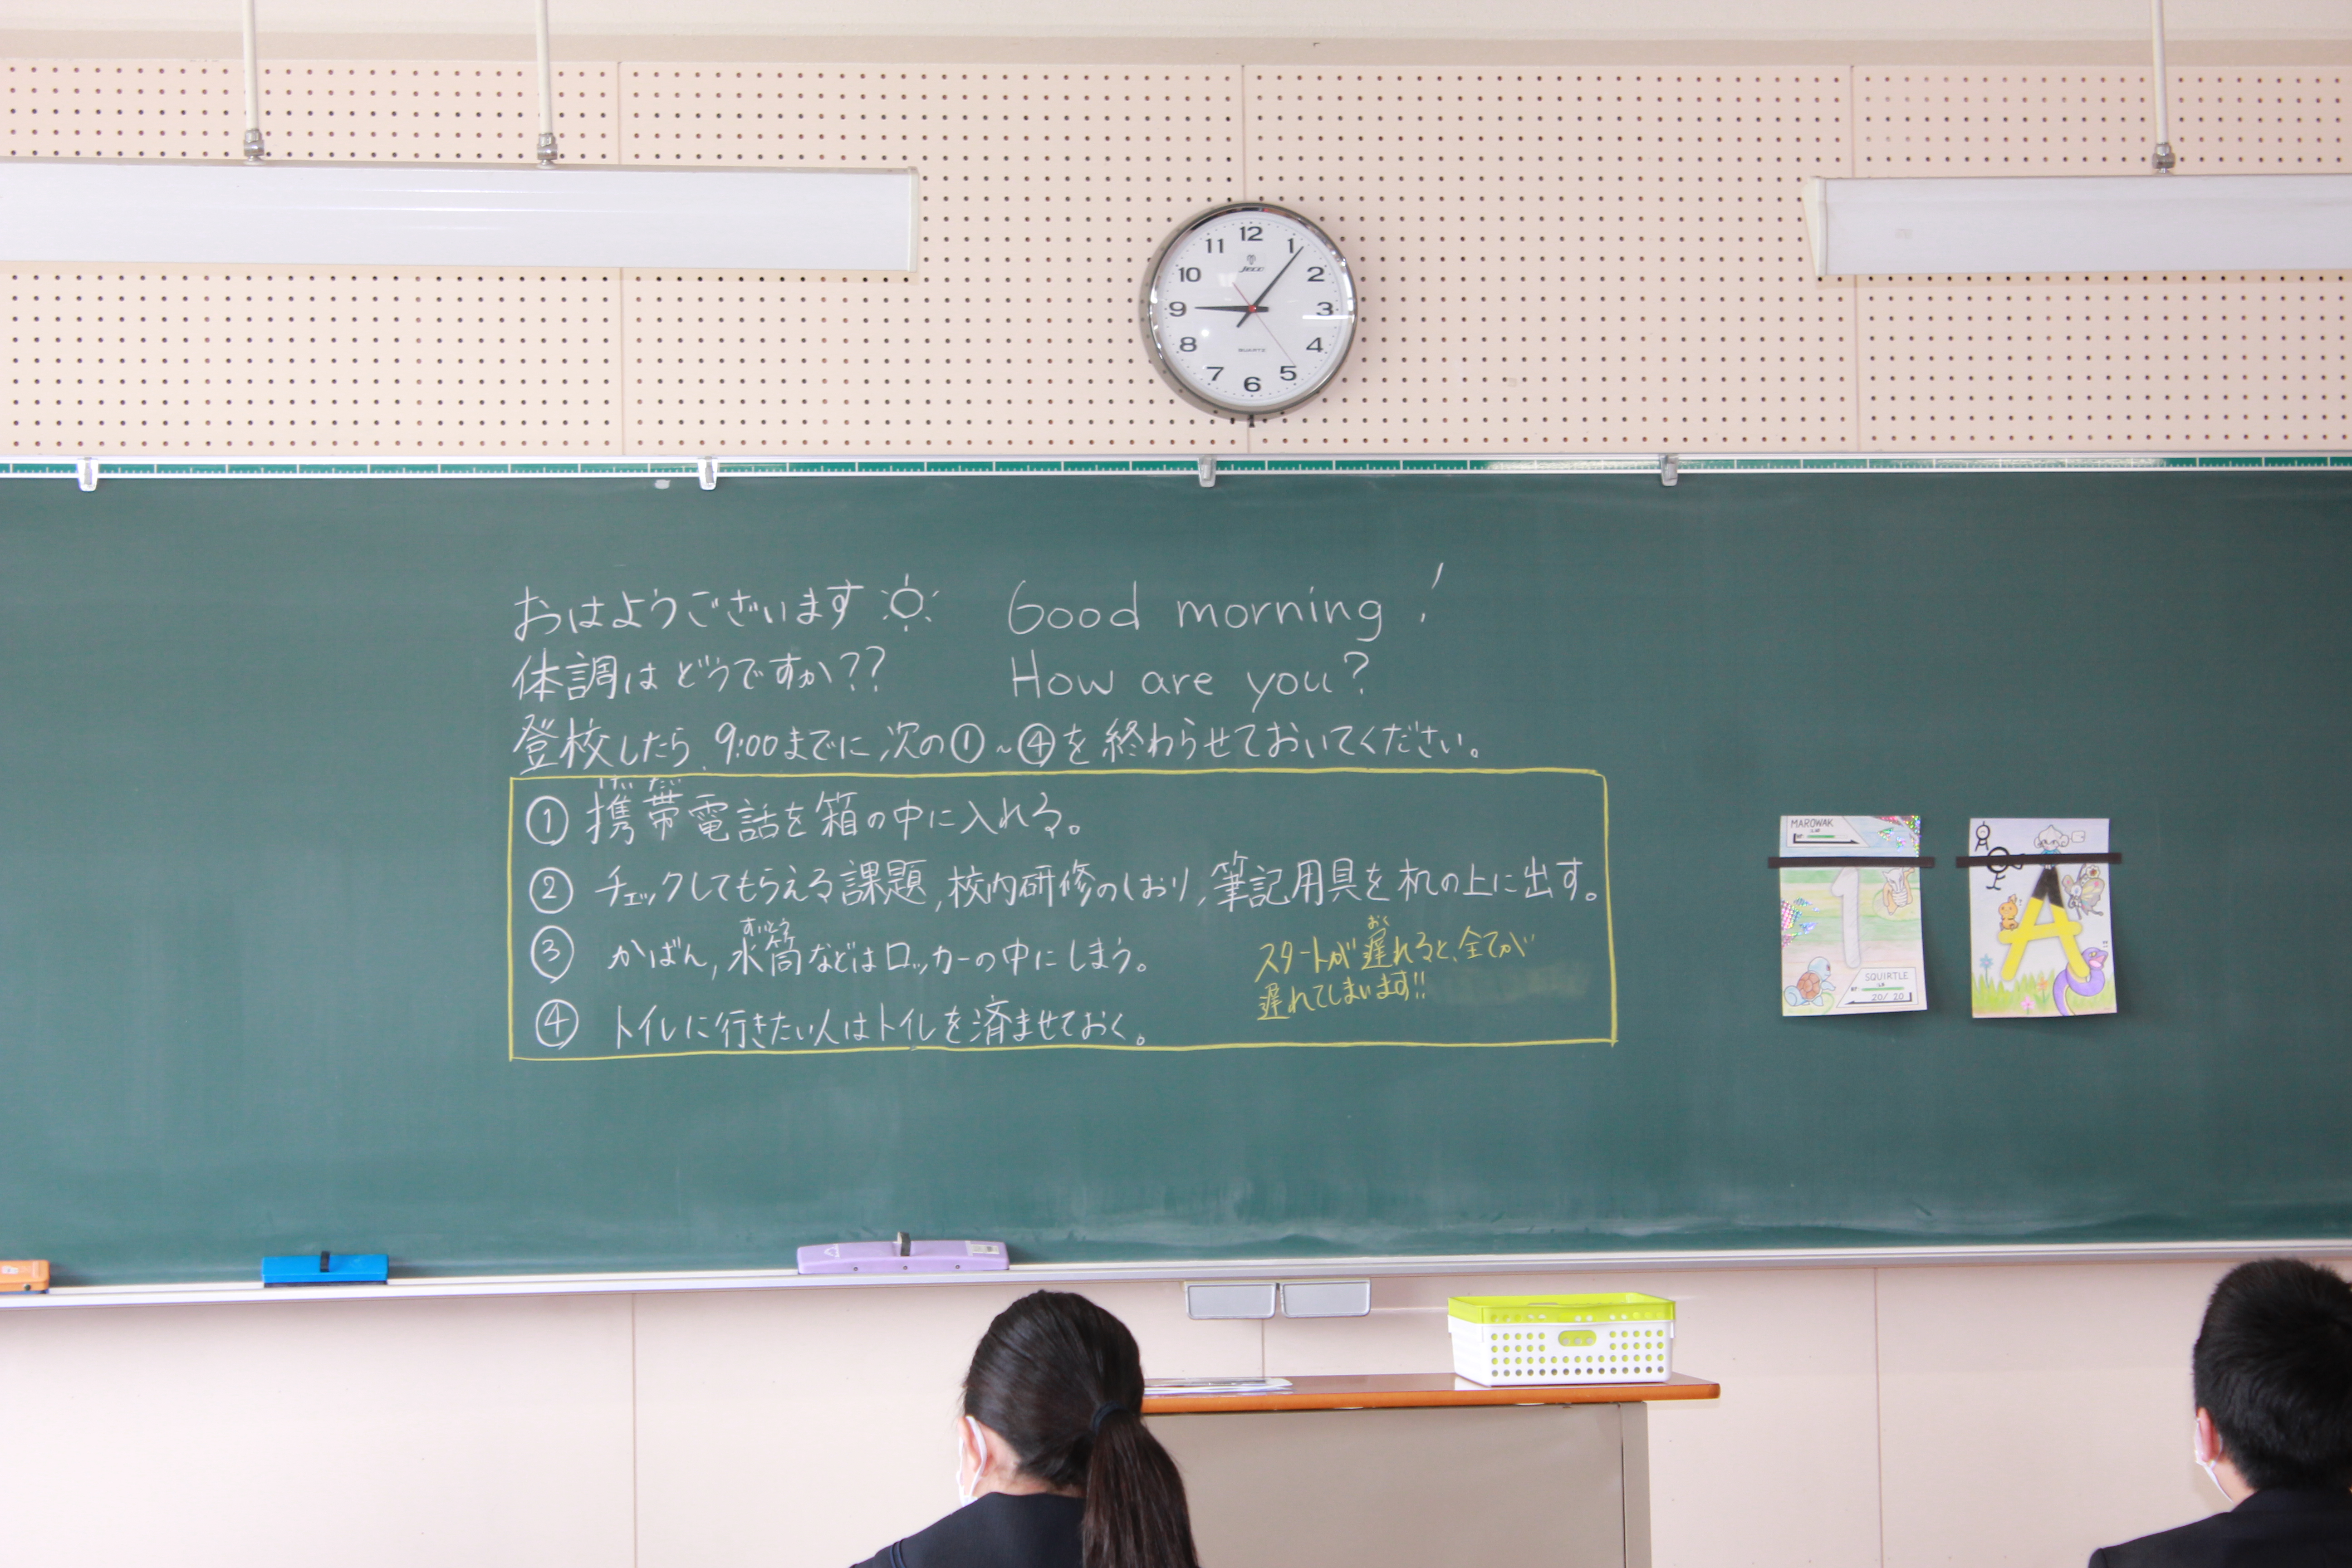 12
11
1
10
2
jeco
9
3
8
4
QUARTZ
7
5
6
おはようございます Good morning!
体調はどうですか?? How are you?
登校したら、9:00までに次の①~④を終わらせておいてください。
けい たい
① 携帯電話を箱の中に入れる。
② チェックしてもらえる課題,校内研修のしおり,筆記用具を机の上に出す。
すいとう
③ かばん,水筒などはロッカーの中にしまう。
④ トイレに行きたい人はトイレを済ませておく。
おく
スタートが遅れると、全てが
遅れてしまいます!!
MAROWAK
1
SQUIRTLE
20/20
A